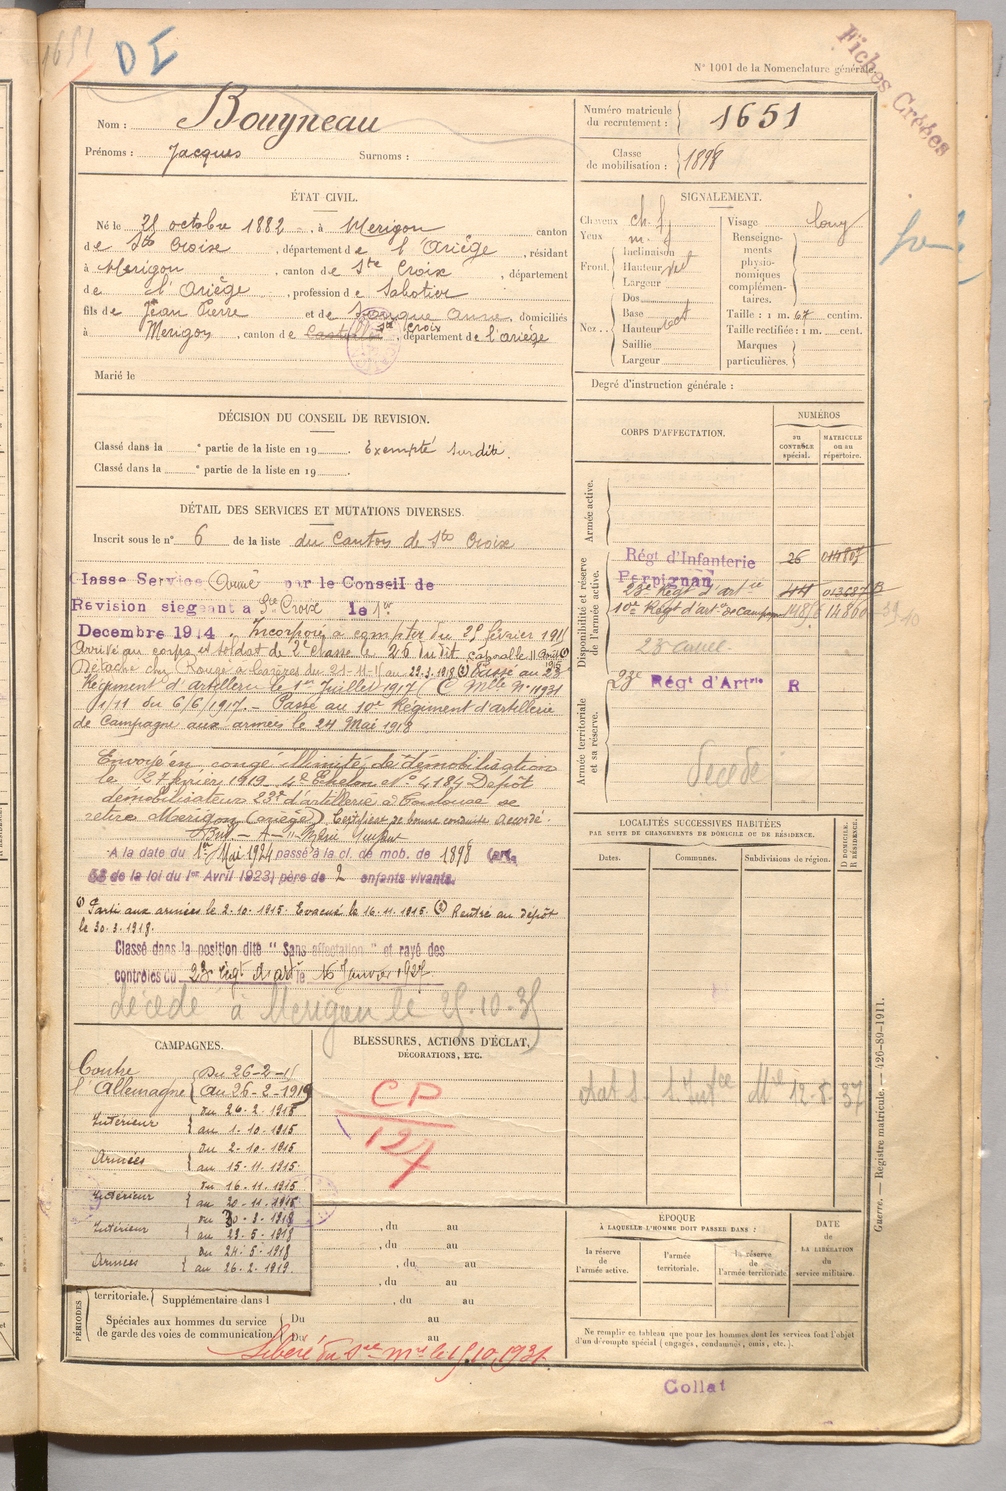 1651
D I
N° 1001 de la Nomenclature générale.
Fiches Créées
Nom : Bouyneau
Prénoms : Jacques Surnoms :
Numéro matricule du recrutement : 1651
Classe de mobilisation : 1898
ÉTAT CIVIL.
Né le 28 octobre 1882, à Merigon canton
de Ste Croix, département de l'Ariège, résidant
à Merigon, canton de Ste Croix, département
de l'Ariège, profession de Sabotier
fils de Jean Pierre et de Anne domiciliés
à Merigon, canton de Ste Croix, département de l'ariège
Marié le
SIGNALEMENT.
Cheveux ch. f
Yeux m. f
Front. Inclinaison
Hauteur
Largeur
Nez. Dos
Base
Hauteur
Saillie
Largeur
Visage long
Renseignements physionomiques complémentaires.
Taille : 1 m. 67 centim.
Taille rectifiée : 1 m. cent.
Marques particulières.
Degré d'instruction générale :
DÉCISION DU CONSEIL DE REVISION.
Classé dans la e partie de la liste en 19 . Exempté Surdité.
Classé dans la e partie de la liste en 19 .
DÉTAIL DES SERVICES ET MUTATIONS DIVERSES.
Inscrit sous le n° 6 de la liste du Canton de Ste Croix
Classe Service Armé par le Conseil de
Revision siegeant a Ste Croix le 1er
Decembre 1914. Incorporé à compter du 26 février 1915
Arrivé au corps et soldat de 2e classe le 26 ludit. Caporal le 11 août (1)
1915
Détaché chez Rouge à Lazères du 21-11-15 au 29.3.1918 (2) Passé au 23e
Régiment d'artillerie le 1er Juillet 1917 (C. Mlle N° 11931
1/11 du 6/6/1917. - Passé au 10e Régiment d'artillerie
de Campagne aux armées le 24 Mai 1918
Envoyé en congé illimité de démobilisation
le 27 février 1919 4e Echelon N° 4184 Dépôt
démobilisateur 23e d'artillerie à Toulouse se
retire Merigon (ariège) Certificat de bonne conduite Accordé.
A la date du 1er Mai 1924 passé à la cl. de mob. de 1898 (art.
58 de la loi du 1er Avril 1923) père de 2 enfants vivants.
(1) Parti aux armées le 2.10.1915. Evacué le 16.11.1915. (2) Rentré au dépôt
le 30.3.1918.
Classé dans la position dite " Sans affectation " et rayé des
contrôles du 23e Régt d'art le 15 Janvier 1927.
décédé à Merigon le 25-10-35
CORPS D'AFFECTATION.
NUMÉROS
AU CONTRÔLE spécial.
MATRICULE ou au répertoire.
Armée active.
Disponibilité et réserve de l'armée active.
Régt d'Infanterie 26
Perpignan
23e Régt d'artie 44
10e Régt d'art de Campagne
23e Régt d'Artrie R
Armée territoriale et sa réserve.
Décédé
LOCALITÉS SUCCESSIVES HABITÉES
PAR SUITE DE CHANGEMENTS DE DOMICILE OU DE RÉSIDENCE.
Dates. Communes. Subdivisions de région.
D DOMICILE. R RÉSIDENCE.
12-8-37
CAMPAGNES.
Contre l'Allemagne Du 26-2-15
au 26-2-1919
Intérieur du 26.2.1915
au 1.10.1915
Armées du 2-10.1915
au 15-11.1915
Intérieur du 16-11.1915
au 20-11-1915
Intérieur du 30-3-1918
au 23-5-1918
Armées du 24-5-1918
au 26-2-1919.
BLESSURES, ACTIONS D'ÉCLAT,
DÉCORATIONS, ETC.
CP
127
, du au
, du au
, du au
, du au
territoriale. Supplémentaire dans l , du au
PÉRIODES
Spéciales aux hommes du service Du au
de garde des voies de communication Du au
Libéré du sce mre le 15.10.1931
ÉPOQUE
À LAQUELLE L'HOMME DOIT PASSER DANS :
la réserve de l'armée active.
l'armée territoriale.
la réserve de l'armée territoriale
DATE de LA LIBÉRATION du service militaire.
Ne remplir ce tableau que pour les hommes dont les services font l'objet
d'un décompte spécial (engagés, condamnés, omis, etc.).
Guerre. — Registre matricule. — 426-89-1911.
Collat